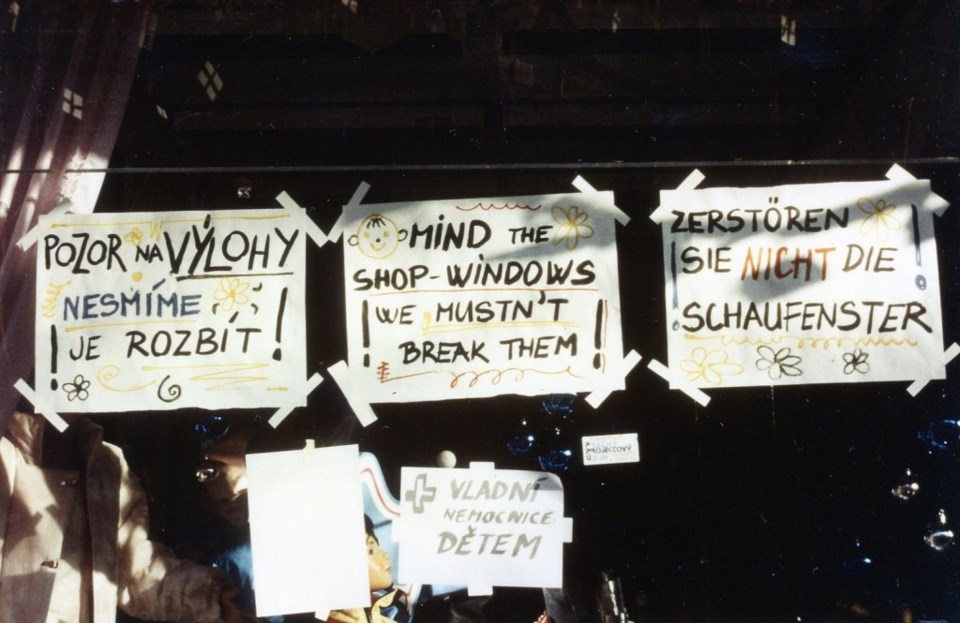 POZOR NA VÝLOHY
NESMÍME
! JE ROZBÍT !
MIND THE
SHOP-WINDOWS
! WE MUSTN'T
BREAK THEM !
ZERSTÖREN
! SIE NICHT DIE !
SCHAUFENSTER
VLÁDNÍ
NEMOCNICE
DĚTEM